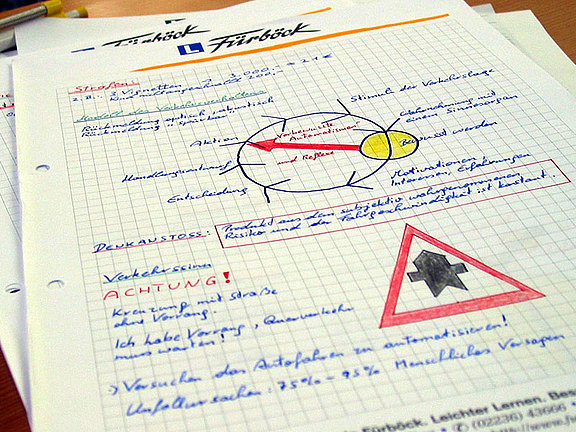 Fürböck
L Fürböck
Straßen:
z.B. 3 Vignetten
Modell des Verkehrsverhaltens
Rückmeldung optisch, akustisch
Rückmeldung "spürbar"
Stimuli der Verkehrslage
Wahrnehmung mit
einem Sinnesorgan
Bewusst werden
Motivationen
Interessen, Erfahrungen
Aktion
Vorbewusste
Automatismen
und Reflexe
Handlungsentwurf
Entscheidung
DENKANSTOSS:
Produkt aus dem subjektiv wahrgenommenen
Risiko und der Fahrgeschwindigkeit ist konstant.
Verkehrssinn
ACHTUNG!
Kreuzung mit Straße
ohne Vorrang.
Ich habe Vorrang, Querverkehr
muss warten!
→ Versuchen das Autofahren zu automatisieren!
Unfallursachen: 75% - 95% Menschliches Versagen
Fürböck. Leichter Lernen. Bes
(02236) 43666